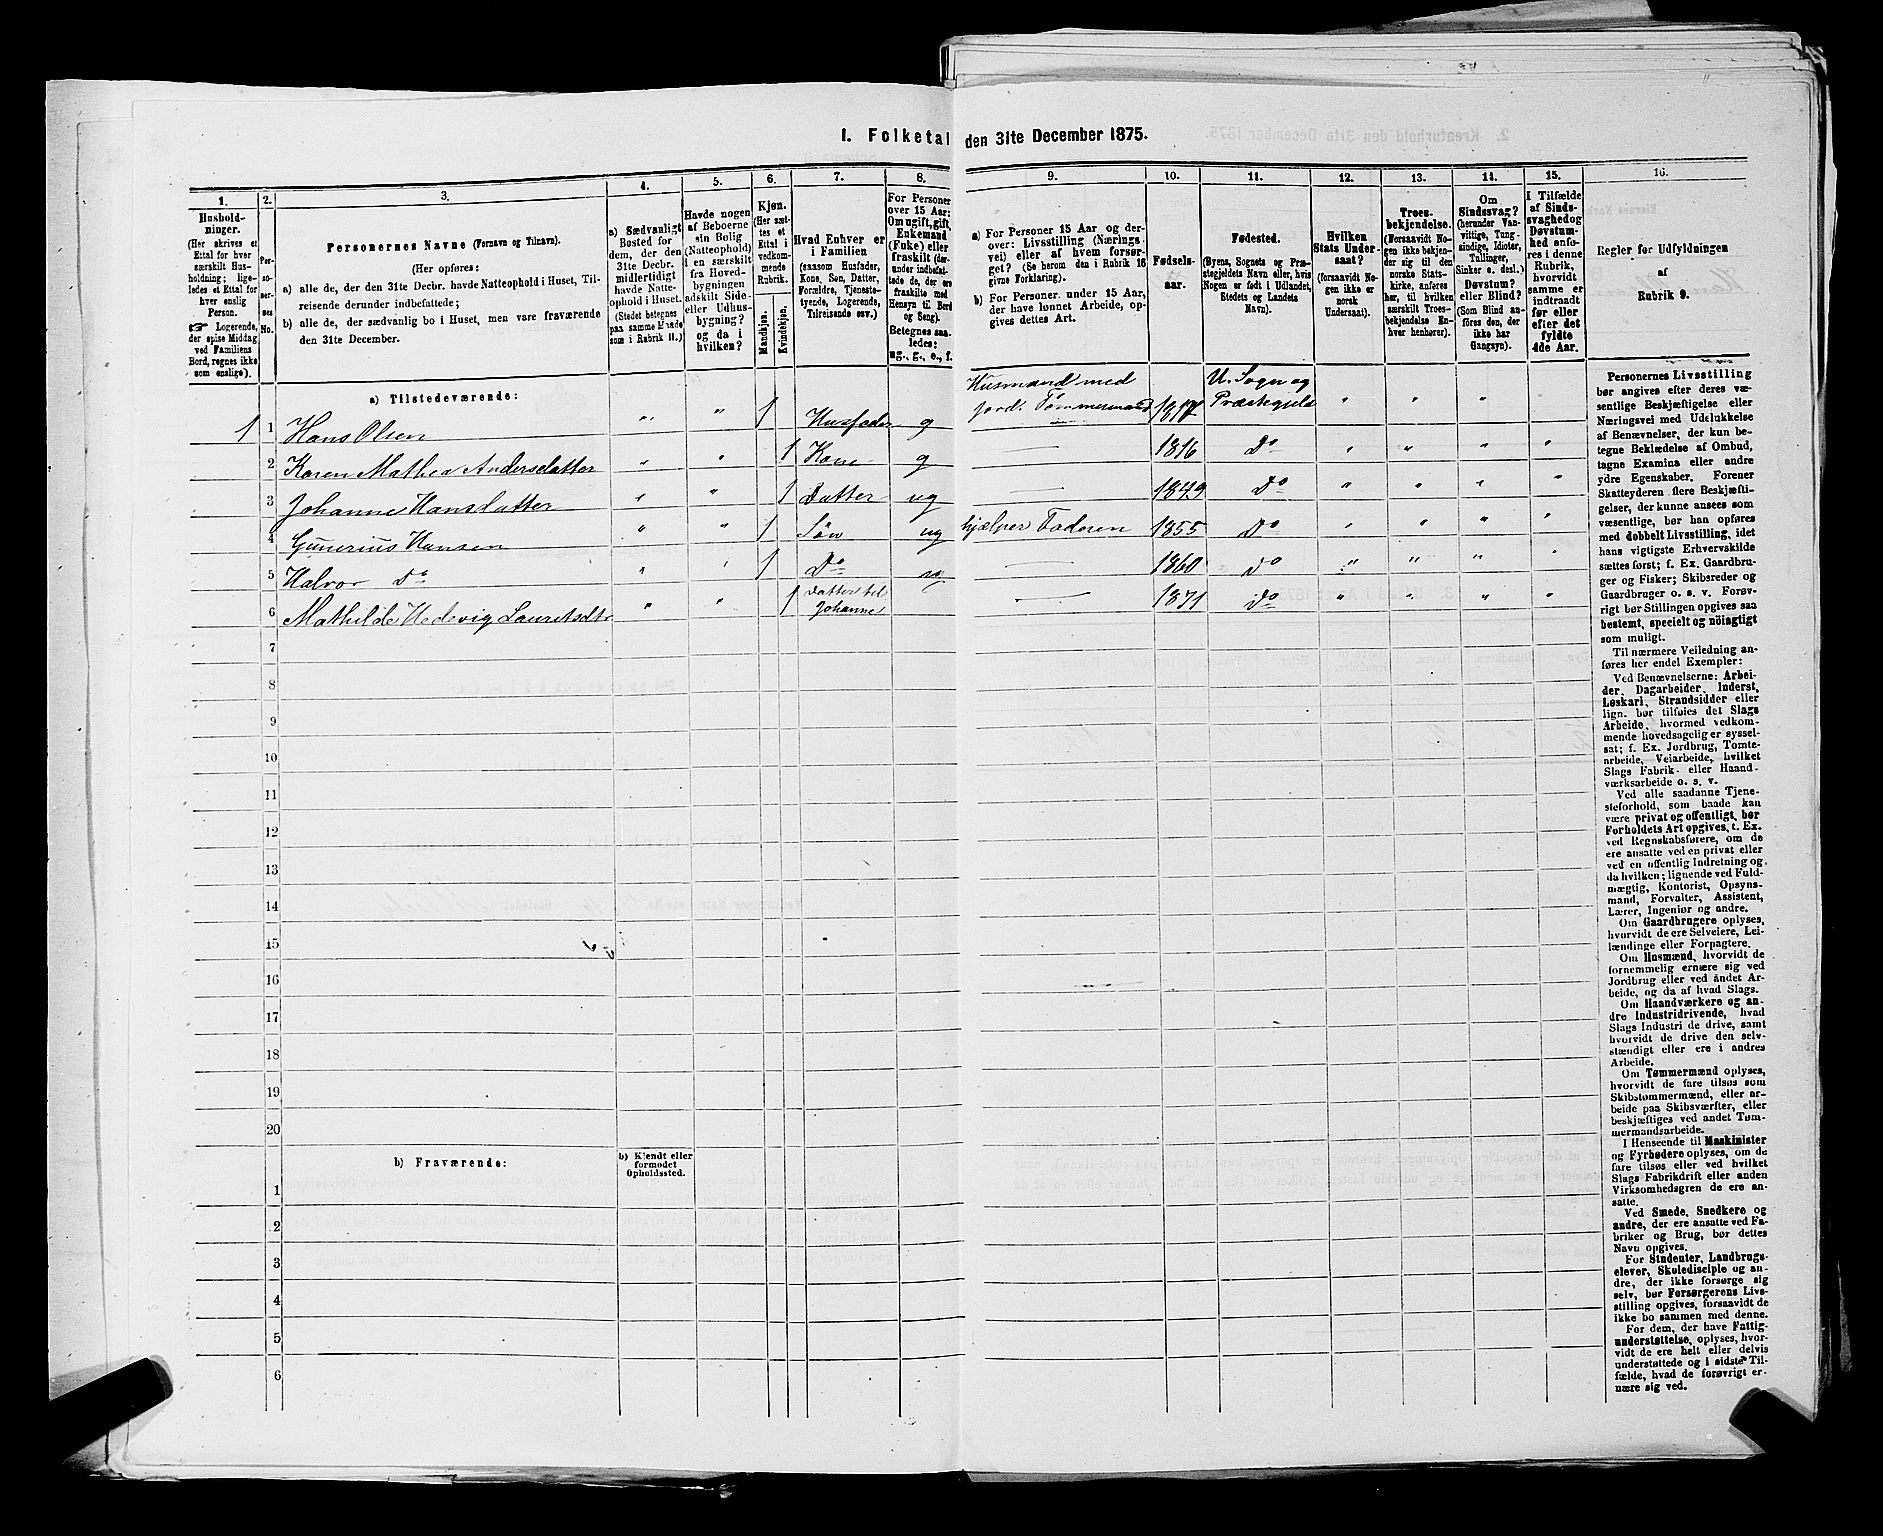 1. Folketal den 31te December 1875.
1.
2.
3.
4.
5.
6.
7.
8.
9.
10.
11.
12.
13.
14.
15.
16.
Hushold-
ninger.
(Her skrives et
Ettal for hver
særskilt Hus-
holdning; lige-
ledes et Ettal for
hver enslig
Person.
☞ Logerende,
der spise Middag
ved Familiens
Bord, regnes ikke
som enslige).
Per-
so-
ner-
nes
No.
Personernes Navne (Fornavn og Tilnavn).
(Her opføres:
a) alle de, der den 31te Decbr. havde Natteophold i Huset, Til-
reisende derunder indbefattede;
b) alle de, der sædvanlig bo i Huset, men vare fraværende
den 31te December.
a) Sædvanligt
Bosted for
dem, der den
31te Decbr.
midlertidigt
havde Natte-
ophold i Huset.
(Stedet betegnes
paa samme Maade
som i Rubrik 11.)
Havde nogen
af Beboerne
sin Bolig
(Natteophold)
i en særskilt
fra Hoved-
bygningen
adskilt Side-
eller Udhus-
bygning?
og da i
hvilken?
Kjøn.
(Her sæt-
tes et
Ettal i
vedkom-
mende
Rubrik.
Mandkjøn.
Kvindekjøn.
Hvad Enhver er
i Familien
(saasom Husfader,
Kone, Søn, Datter,
Forældre, Tjeneste-
tyende, Logerende,
Tilreisende osv.)
For Personer
over 15 Aar:
Om ugift, gift,
Enkemand
(Enke) eller
fraskilt (der-
under indbefat-
tede de, der ere
fraskilte med
Hensyn til Bord
og Seng).
Betegnes saa-
ledes:
ug., g., e., f.
a) For Personer 15 Aar og der-
over: Livsstilling (Nærings-
vei) eller af hvem forsør-
get? (Se herom den i Rubrik 16
givne Forklaring).
b) For Personer under 15 Aar,
der have lønnet Arbeide, op-
gives dettes Art.
Fødsels-
aar.
Fødested.
(Byens, Sognets og Præ-
stegjeldets Navn eller, hvis
Nogen er født i Udlandet,
Stedets og Landets
Navn).
Hvilken
Stats Under-
saat?
(forsaavidt No-
gen ikke er
norsk
Undersaat).
Troes-
bekjendelse.
(Forsaavidt No-
gen ikke bekjen-
der sig til den
norske Stats-
kirke, anføres
her, til hvilken
særskilt Troes-
bekjendelse En-
hver henhører).
Om
Sindssvag?
(herunder Van-
vittige, Tung-
sindige, Idioter,
Tullinger,
Sinker o. desl.)
Døvstum?
eller Blind?
(Som Blind an-
føres den, der
ikke har
Gangsyn).
I Tilfælde
af Sinds-
svaghed og
Døvstum-
hed anfø-
res i denne
Rubrik,
hvorvidt
samme er
indtraadt
før eller
efter det
fyldte
4de Aar.
Regler for Udfyldningen
af
Rubrik 9.
a) Tilstedeværende:
1 1 Hans Olsen " " 1 Husfader g Husmand med
jord. Tømmermand 1817 U. Sogn og
Præstegjeld " " "
2 Karen Mathea Andersdatter " " 1 Kone g — 1816 Do " " " "
3 Johanne Hansdatter " " 1 Datter ug — 1849 Do " " " "
4 Gunerius Hansen " " 1 Søn ug hjælper Faderen 1855 Do " " " "
5 Halvor Do " " 1 Do ug — 1860 Do " " " "
6 Mathilde Hedevig Lauritsdtr " " 1 Datter til
Johanne — 1871 Do " " " "
7
8
9
10
11
12
13
14
15
16
17
18
19
20
b) Fraværende:
b) Kjendt eller
formodet
Opholdssted.
1
2
3
4
5
6
Personernes Livsstilling
bør angives efter deres væ-
sentlige Beskjæftigelse eller
Næringsvei med Udelukkelse
af Benævnelser, der kun be-
tegne Beklædelse af Ombud,
tagne Examina eller andre
ydre Egenskaber. Forener
Skatteyderen flere Beskjæfti-
gelser, der kunne ansees som
væsentlige, bør han opføres
med dobbelt Livsstilling, idet
hans vigtigste Erhvervskilde
sættes først; f. Ex. Gaardbru-
ger og Fisker; Skibsreder og
Gaardbruger o. s. v. Forøv-
rigt bør Stillingen opgives saa
bestemt, specielt og nöiagtigt
som muligt.
Til nærmere Veiledning an-
føres her endel Exempler:
Ved Benævnelserne: Arbei-
der, Dagarbeider, Inderst,
Løskarl, Strandsidder eller
lign. bør tilføies det Slags
Arbeide, hvormed vedkom-
mende hovedsagelig er syssel-
sat; f. Ex. Jordbrug, Tomte-
arbeide, Veiarbeide, hvilket
Slags Fabrik- eller Haand-
værksarbeide o. s. v.
Ved alle saadanne Tjene-
steforhold, som baade kan
være privat og offentligt, bør
Forholdets Art opgives, t. Ex.
ved Regnskabsførere, om de
ere ansatte ved en privat eller
ved en offentlig Indretning og
da hvilken; lignende ved Fuld-
mægtig, Kontorist, Opsyns-
mand, Forvalter, Assistent,
Lærer, Ingeniør og andre.
Om Gaardbrugere oplyses,
hvorvidt de ere Selveiere, Lei-
lændinge eller Forpagtere.
Om Husmænd, hvorvidt de
fornemmelig ernære sig ved
Jordbrug eller ved andet Ar-
beide, og da af hvad Slags.
Om Haandværkere og an-
dre Industridrivende, hvad
Slags Industri de drive, samt
hvorvidt de drive den selv-
stændigt eller ere i andres
Arbeide.
Om Tømmermænd oplyses,
hvorvidt de fare tilsøs som
Skibstømmermænd, eller ar-
beide paa Skibsværfter, eller
beskjæftiges ved andet Tøm-
mermandsarbeide.
I Henseende til Maskinister
og Fyrbødere oplyses, om de
fare tilsøs eller ved hvilket
Slags Fabrikdrift eller anden
Virksomhedsgren de ere an-
satte.
Ved Smede, Snedkere og
andre, der ere ansatte ved Fa-
briker og Brug, bør dettes
Navn opgives.
For Studenter, Landbrugs-
elever, Skoledisciple og an-
dre, der ikke forsørge sig
selv, bør Forsørgerens Livs-
stilling opgives, forsaavidt de
ikke bo sammen med denne.
For dem, der have Fattig-
understøttelse, oplyses, hvor-
vidt de ere helt eller delvis
understøttede og i sidste Til-
fælde, hvad de forøvrigt er-
nære sig ved.